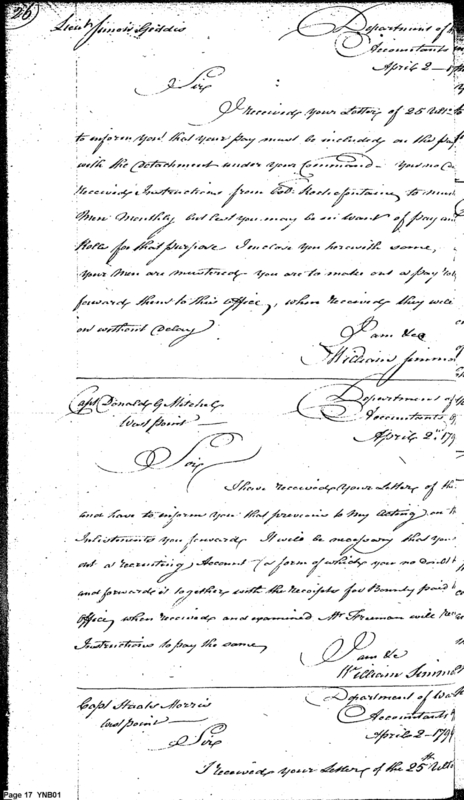 26
Lieut Simon Geddis
Department of
Accountants
April 2 - 17
Sir
I received your Letter of 25 Ulto
to inform you that your pay must be included on the pay
with the detachment under your Command - you no
received Instructions from Col. Rochefontaine to
Men Monthly but lest you may be in want of pay
Rolls for that purpose I inclose you herewith some,
your Men are mustered you are to make out a pay
forward them to this office, when received they will
on without delay
I am &c
William Simm
Capt Donald G Mitchel
West point
Department of
Accountants
April 2d 179
Sir
I have received your Letter of the
and have to inform you that previous to my acting on
Inlistments you forward, It will be necessary that you
out a recruiting Account (a form of which you no doubt
and forward it together with the receipts for Bounty paid
office, when received and examined Mr Freeman will
Instructions to pay the same
I am &c
William Simm
Capt Staats Morris
West point
Department of Wa
Accountants
April 2 - 179
Sir
I received your Letter of the 25th Ulto
Page 17 YNB01